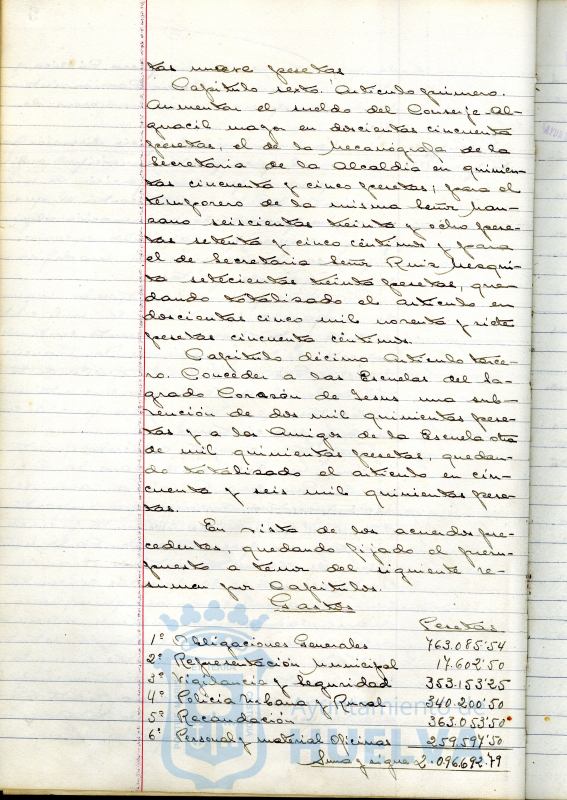 tas nueve pesetas
Capítulo sexto. Artículo primero.
Aumentar el sueldo del Conserje-Al-
guacil mayor en doscientas cincuenta
pesetas, el de la Mecanógrafa de la
Secretaria de la Alcaldía en quinien-
tas cincuenta y cinco pesetas, para el
temporero de la misma Señor Man-
sano seiscientas treinta y ocho pese-
tas setenta y cinco céntimos y para
el de Secretaria Señor Ruiz Mesqui-
ta setecientas treinta pesetas, que-
dando totalizado el artículo en
doscientas cinco mil noventa y siete
pesetas cincuenta céntimos.
Capítulo décimo Artículo terce-
ro. Conceder a las Escuelas del Sa-
grado Corazón de Jesus una sub-
vención de dos mil quinientas pese-
tas y a los Amigos de la Escuela otra
de mil quinientas pesetas, quedan-
do totalizado el artículo en cin-
cuenta y seis mil quinientas pese-
tas.
En vista de los acuerdos pre-
cedentes, quedando fijado el presu-
puesto a tenor del siguiente re-
sumen por Capítulos.
Gastos
Pesetas
1º Obligaciones Generales 763.085'54
2º Representación Municipal 17.602'50
3º Vigilancia y Seguridad 353.153'25
4º Policia Urbana y Rural 340.200'50
5º Recaudación 363.053'50
6º Personal y material Oficinas 259.597'50
Suma y sigue 2.096.692'79
Ayuntamiento de
HUELVA